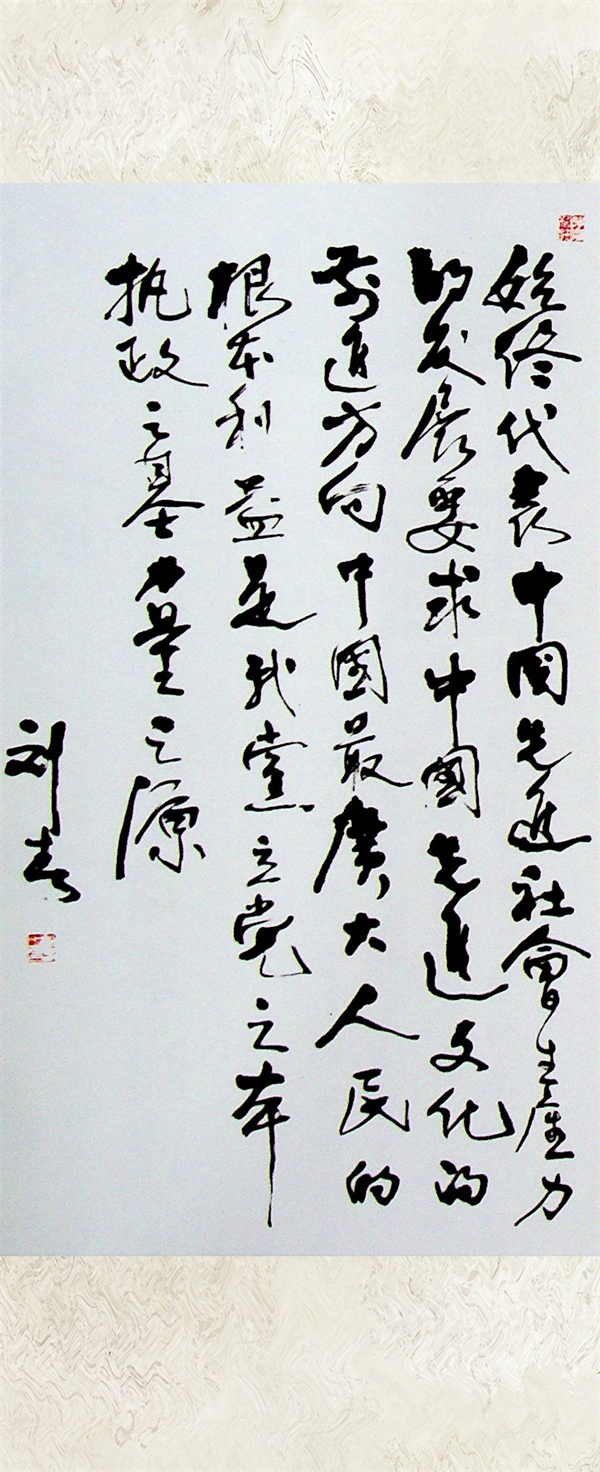 始终代表中國先進社會生產力
的发展要求中國先進文化的
前進方向中國最廣大人民的
根本利益是我黨立党之本
执政之基力量之源
刘春